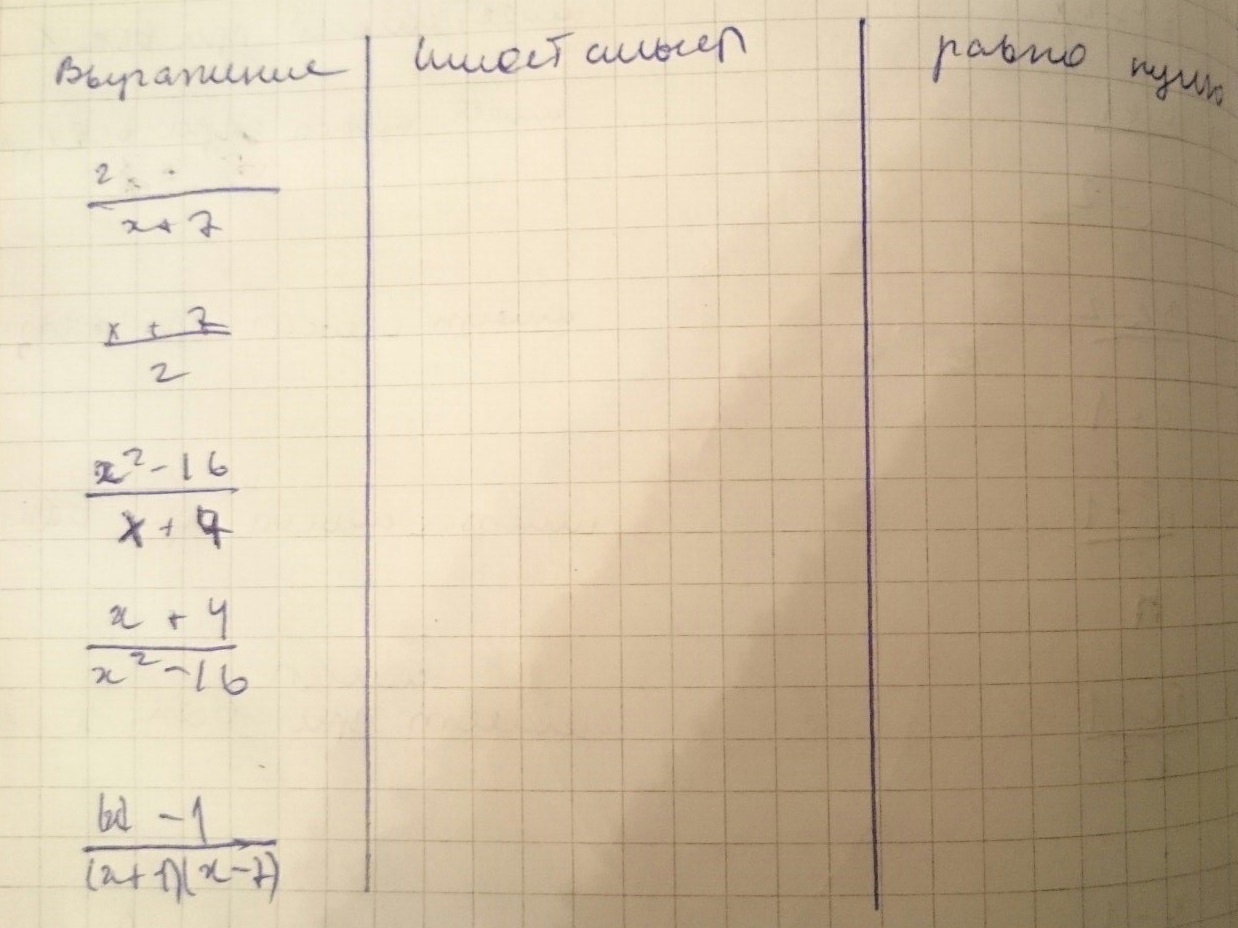 Выражение имеет смысл равно нулю
2
x + 7
x + 7
2
x² - 16
x + 4
x + 4
x² - 16
|x| - 1
(x + 1)(x - 7)